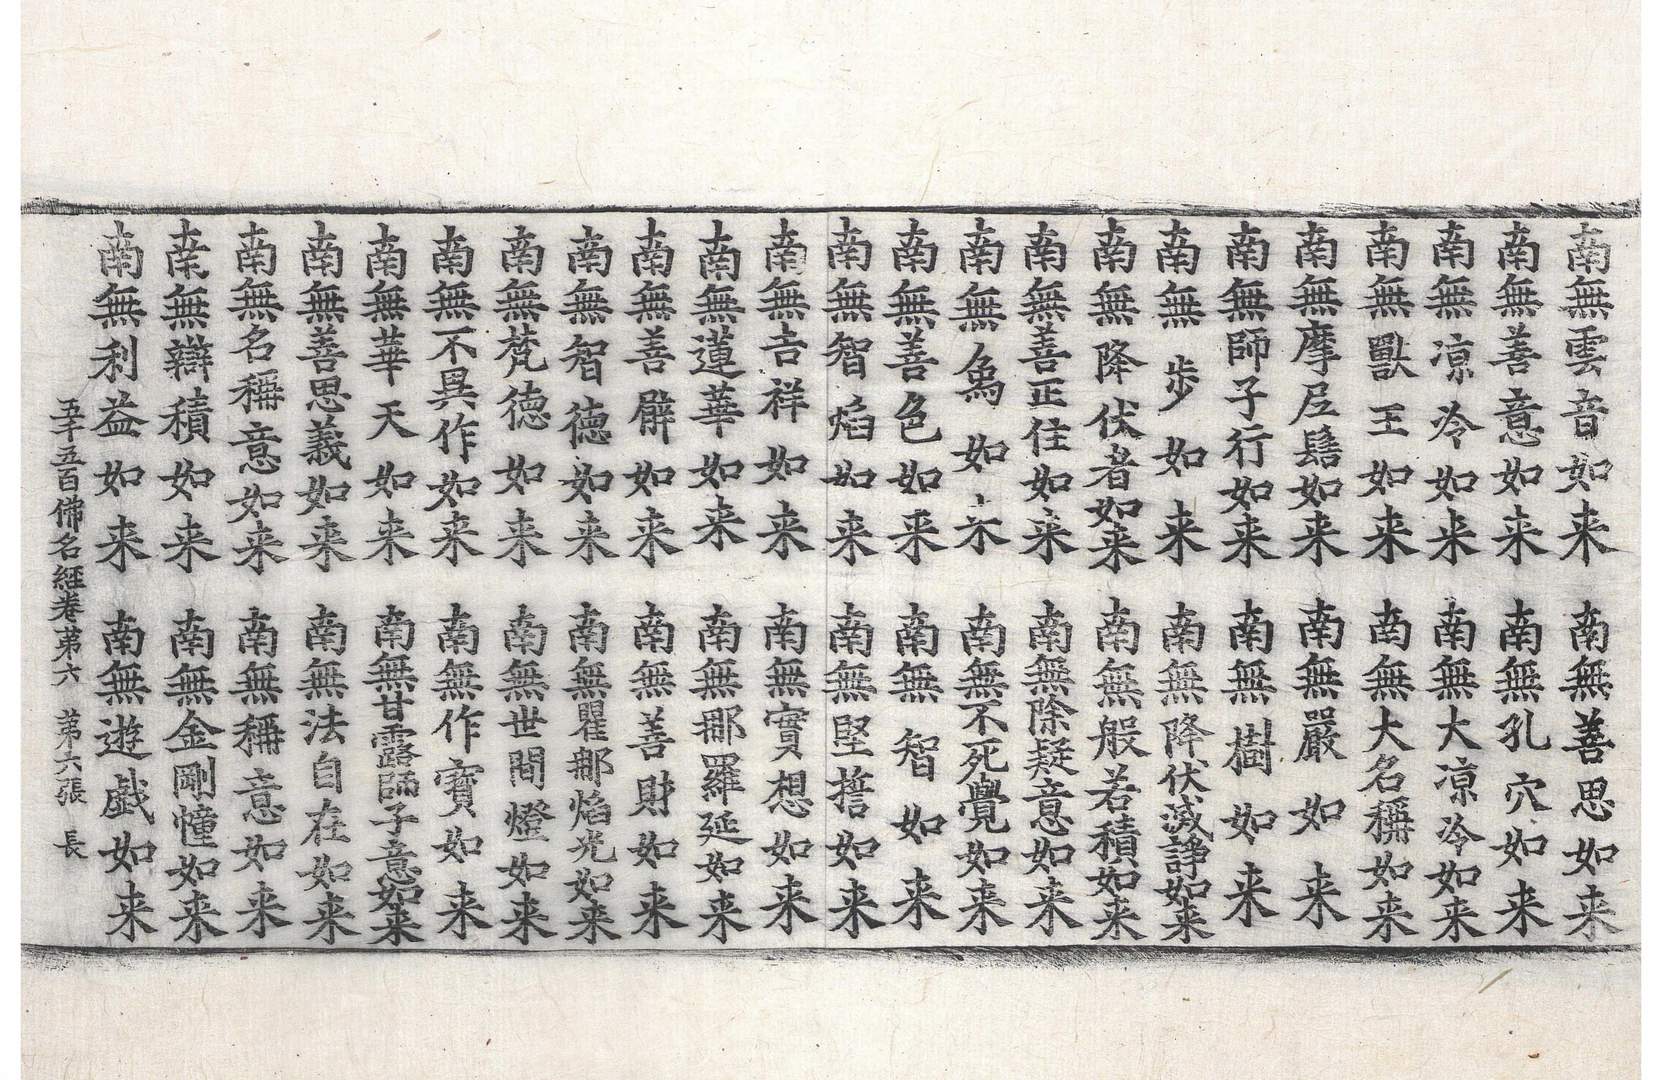 南無雲音如来 南無善思如来
南無善意如来 南無孔穴如来
南無凉冷如来 南無大凉冷如来
南無獸王如来 南無大名稱如来
南無摩尼髻如来 南無嚴如来
南無師子行如来 南無樹如来
南無步如来 南無降伏滅諍如来
南無降伏者如来 南無般若積如来
南無善正住如来 南無除疑意如来
南無為如 南無不死覺如来
南無善色如来 南無智如来
南無智焰如来 南無堅誓如来
南無吉祥如来 南無實想如来
南無蓮華如来 南無那羅延如来
南無善臂如来 南無善財如来
南無智德如来 南無瞿那焰光如来
南無梵德如来 南無世間燈如来
南無不異作如来 南無作寶如来
南無華天如来 南無甘露師子意如来
南無善思義如来 南無法自在如来
南無名稱意如来 南無稱意如来
南無辯積如来 南無金剛憧如来
南無利益如来 南無遊戲如来
五千五百佛名經卷第六 第六張 長